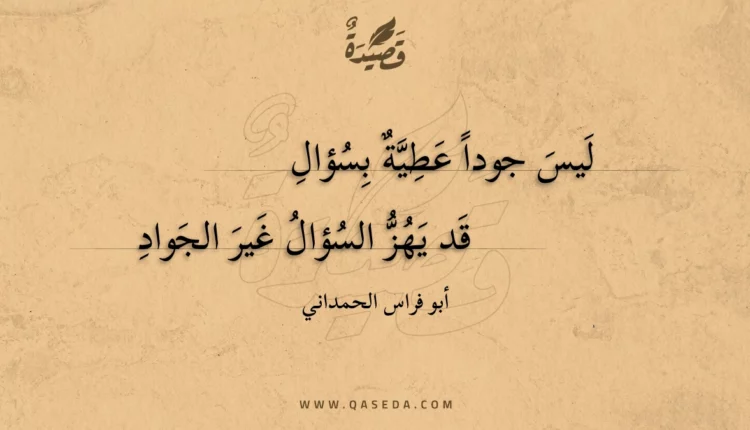 قَصِيْدَةٌ
لَيسَ جوداً عَطِيَّةٌ بِسُؤالِ
قَد يَهُزُّ السُؤالُ غَيرَ الجَوادِ
أبو فراس الحمداني
WWW.QASEDA.COM